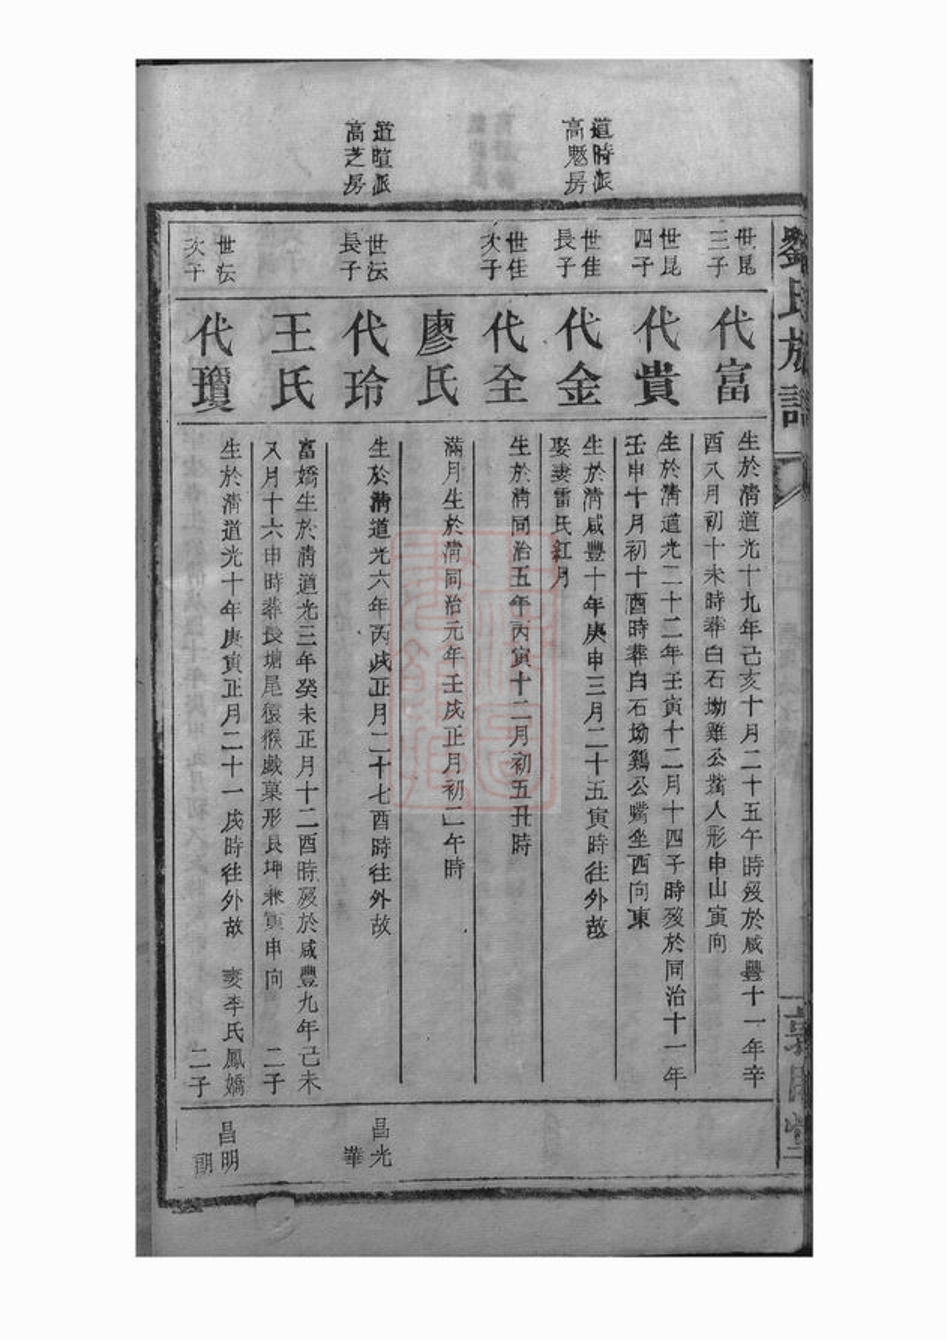 劉氏族譜
道時派
高魁房
道暄派
高芝房
世昆
三子
代富
生於清道光十九年己亥十月二十五午時歿於咸豐十一年辛
酉八月初十未時葬白石坳雞公嘴人形申山寅向
世昆
四子
代貴
生於清道光二十二年壬寅十二月十四子時歿於同治十一年
壬申十月初十酉時葬白石坳鷄公嘴坐西向東
世佳
長子
代金
生於清咸豐十年庚申三月二十五寅時往外故
娶妻雷氏紅月
世佳
次子
代全
生於清同治五年丙寅十二月初五丑時
廖氏
滿月生於清同治元年壬戌正月初二午時
世沄
長子
代玲
生於清道光六年丙戌正月二十七酉時往外故
王氏
富嬌生於清道光三年癸未正月十二酉時歿於咸豐九年己未
八月十六申時葬長塘尾猴戲菓形艮坤兼寅申向 二子
昌光
華
世沄
次子
代瓊
生於清道光十年庚寅正月二十一戌時往外故 妻李氏鳳嬌
二子
昌明
朗